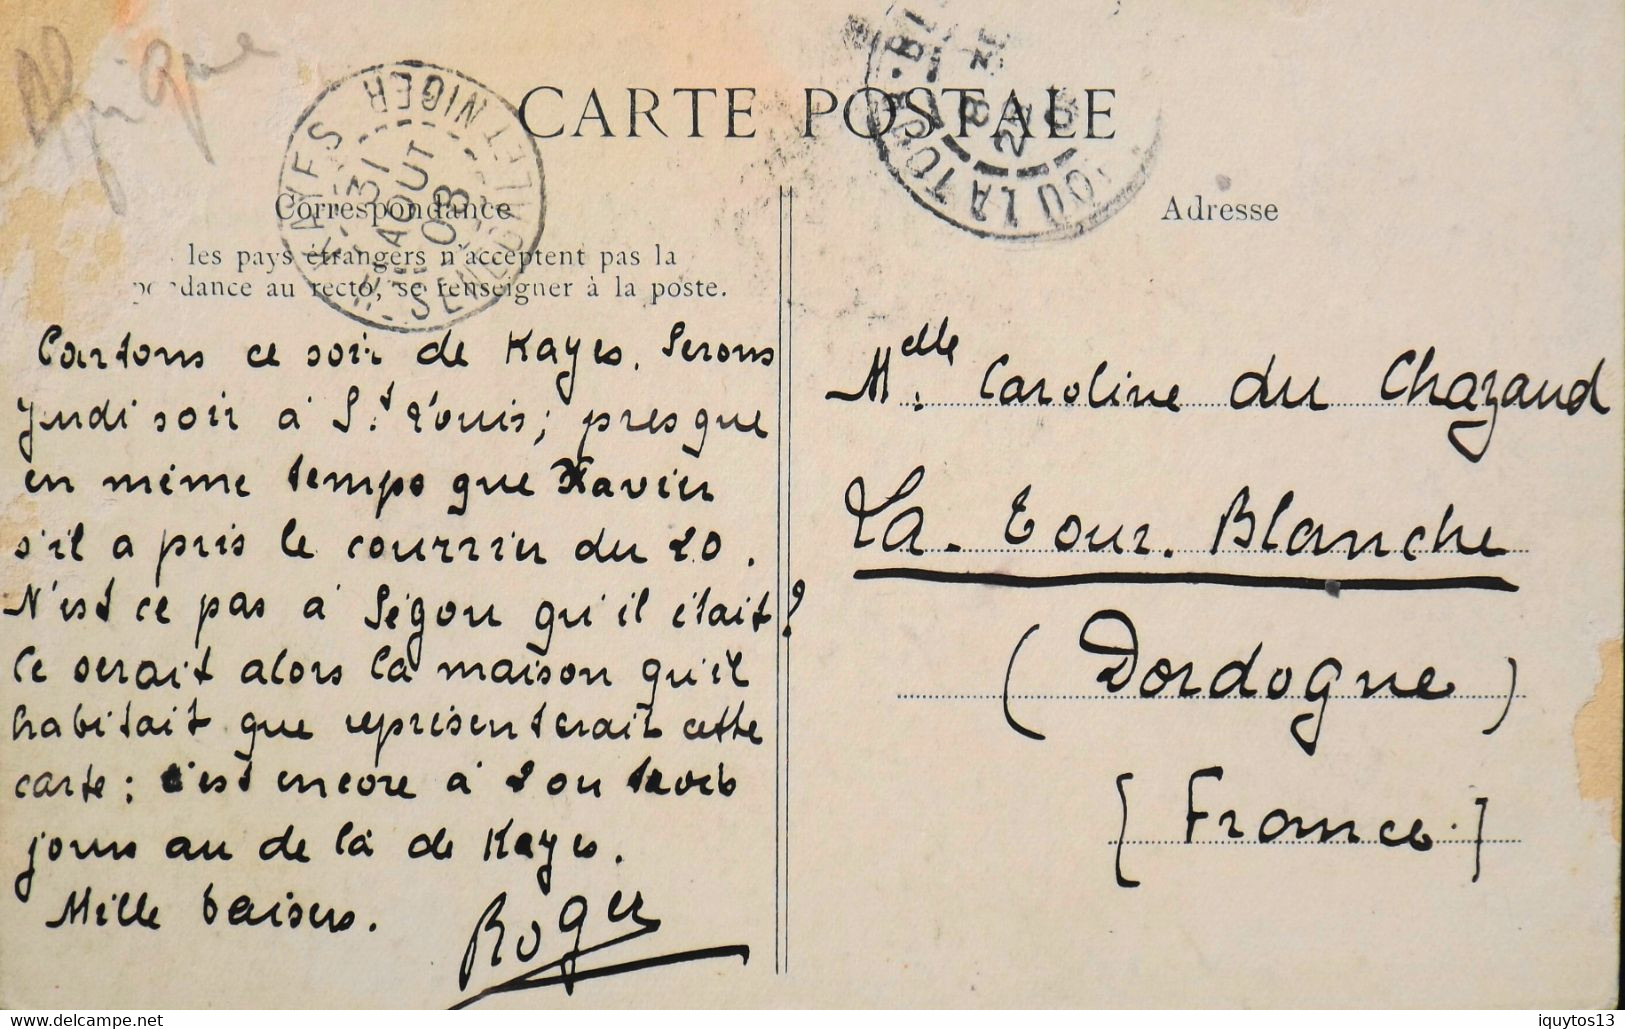 Afrique
CARTE POSTALE
Correspondance
les pays étrangers n'acceptent pas la
dance au recto, se renseigner à la poste.
KAYES
HT SENEGAL ET NIGER
31
AOUT
08
Partons ce soir de Kayes. Serons
Jeudi soir à St Louis; presque
en même temps que Xavier
s'il a pris le courrier du 20.
N'est ce pas à Ségou qu'il était?
Ce serait alors la maison qu'il
habitait que représenterait cette
carte: c'est encore à 2 ou trois
jours au de là de Kayes.
Mille baisers.
Roger
LA TOUR-BL
Adresse
Melle Caroline du Chazaud
La. Tour. Blanche
(Dordogne)
[France.]
iquytos13